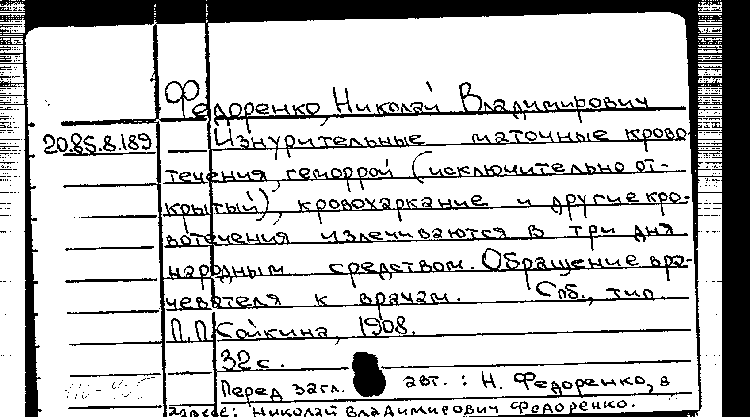 Федоренко, Николай Владимирович
20.85.8.189 Изнурительные маточные крово-
течения, геморрой (исключительно от-
крытый), кровохаркание и другие кро-
вотечения излечиваются в три дня
народным средством. Обращение вра-
чевателя к врачам. Спб., тип.
П.П. Сойкина, 1908.
32 с.
Перед загл. авт.: Н. Федоренко, в
адресе: Николай Владимирович Федоренко.